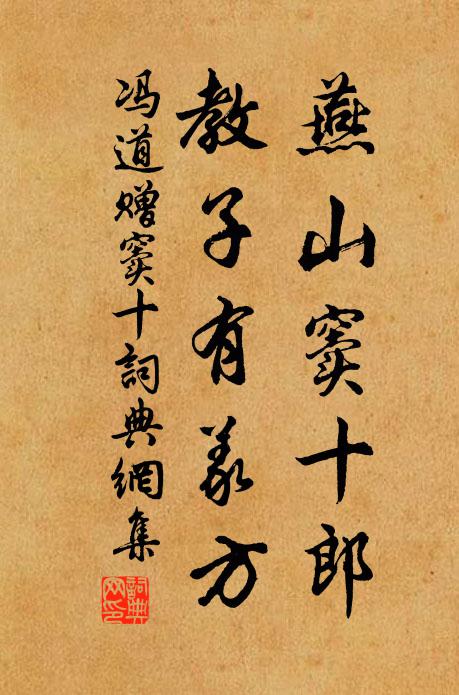 燕山窦十郎
教子有义方
冯道赠窦十词典網集
詞典网印